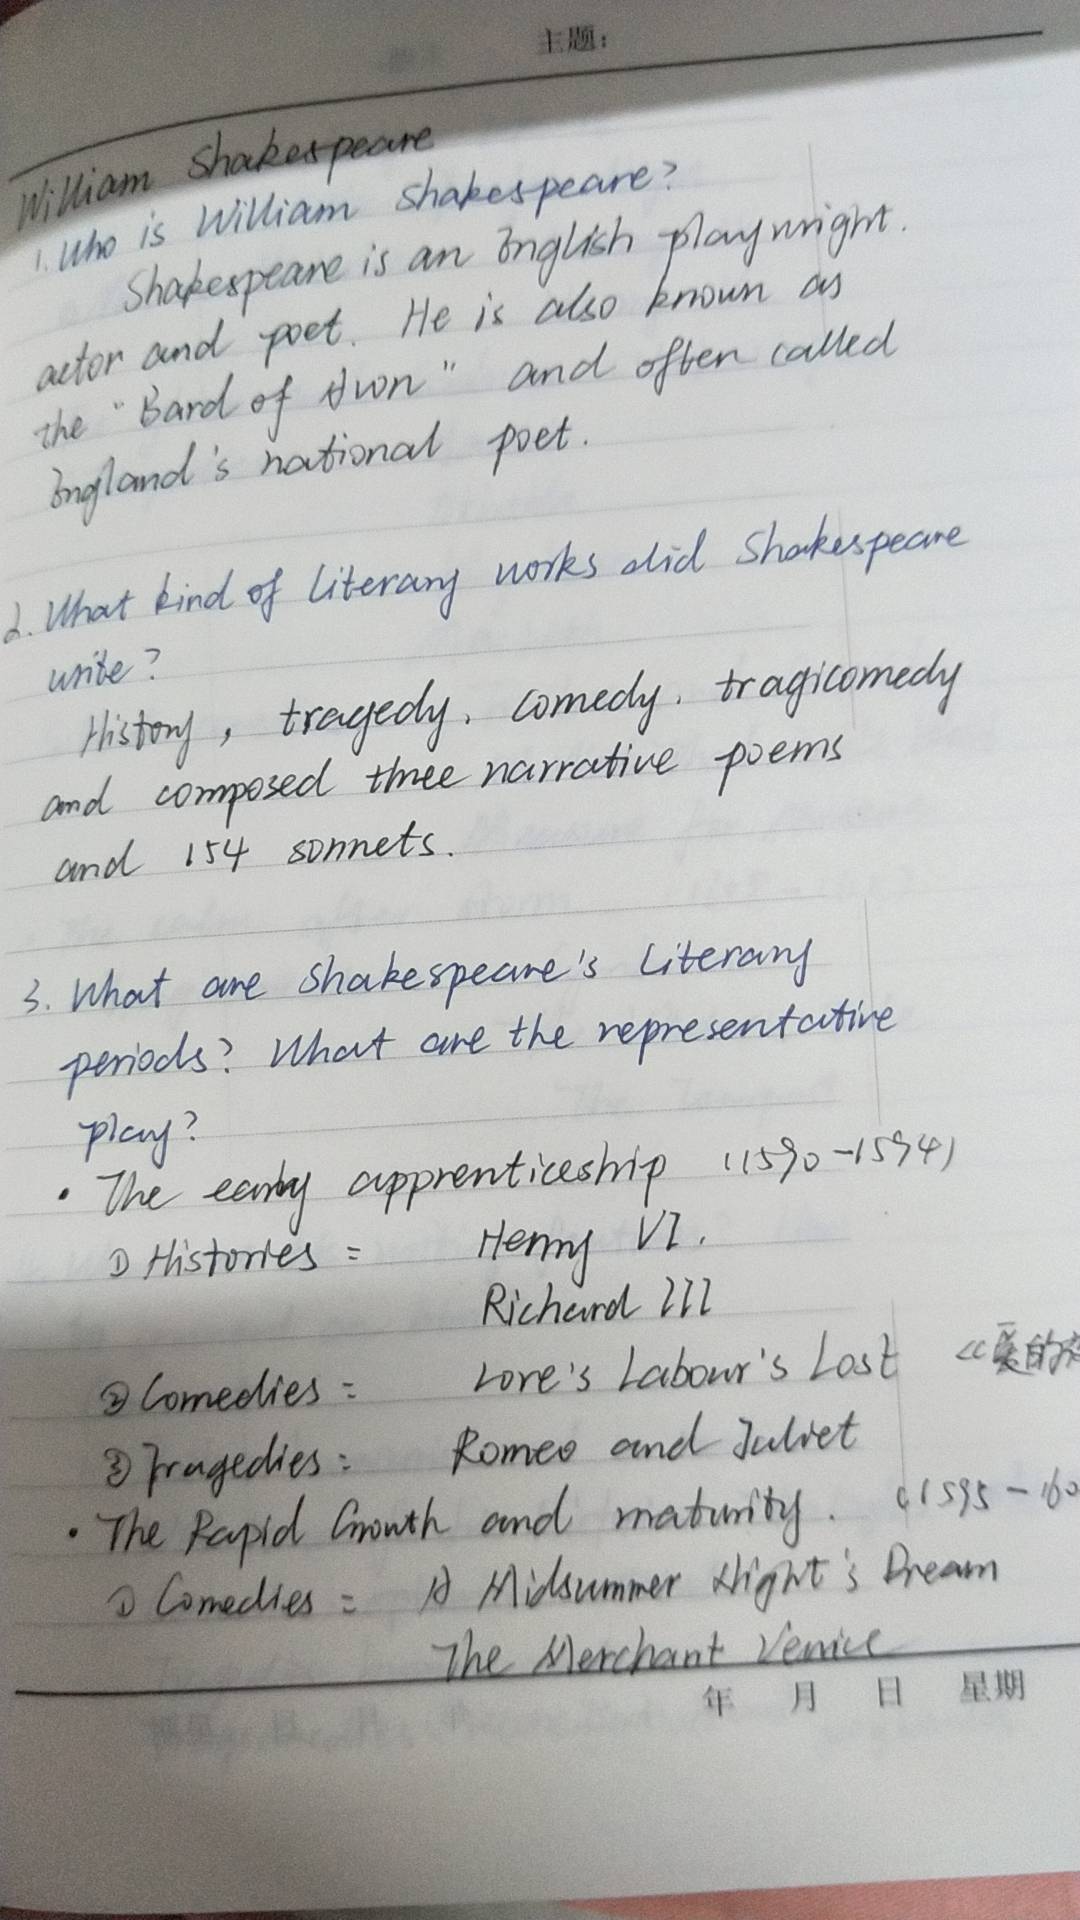 主题:
William Shakespeare
1. Who is William Shakespeare?
Shakespeare is an English playwright.
actor and poet. He is also known as
the "Bard of Avon" and often called
England's national poet.
2. What kind of literary works did Shakespeare
write?
History, tragedy, comedy, tragicomedy
and composed three narrative poems
and 154 sonnets.
3. What are Shakespeare's Literary
periods? What are the representative
play?
• The early apprenticeship (1590-1594)
① Histories: Henry VI.
Richard III
② Comedies: Love's Labour's Lost 《爱的
③ Tragedies: Romeo and Juliet
• The Rapid Growth and maturity. (1595-160
① Comedies: A Midsummer Night's Dream
The Merchant Venice
年 月 日 星期